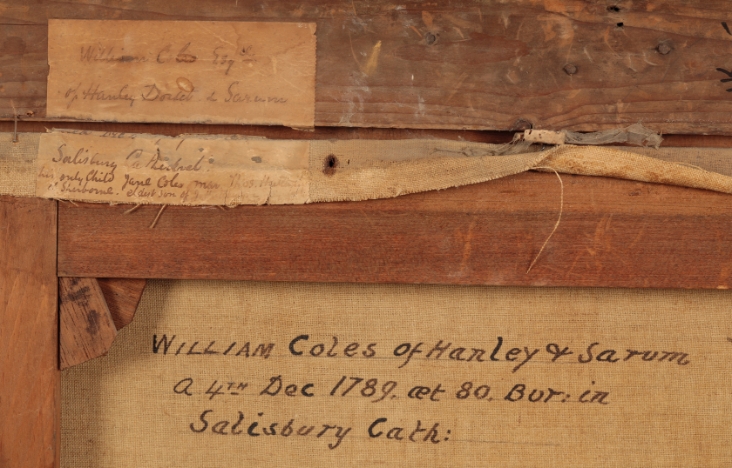 William Coles Esqre
of Hanley Dorset & Sarum
Salisbury Cathedral
his only Child Jane Coles mar. Thos.
Sherborne eldest son of
WILLIAM Coles of Hanley & Sarum
a 4TH Dec 1789. æt 80. Bur: in
Salisbury Cath: